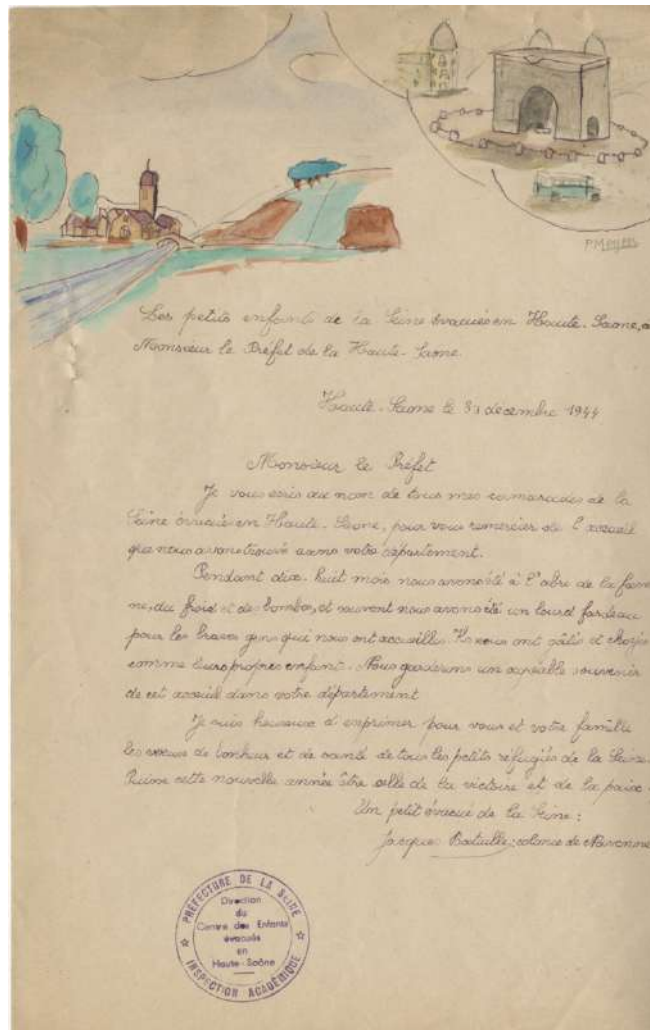 P. Meyers
Les petits enfants de la Seine évacués en Haute-Saone, a
Monsieur le Préfet de la Haute-Saone
Haute-Saone le 31 décembre 1944
Monsieur le Préfet
Je vous écris au nom de tous mes camarades de la
Seine évacués en Haute-Saone, pour vous remercier de l'accueil
que nous avons trouvé dans votre département.
Pendant dix-huit mois nous avons été à l'abri de la fami
ne, du froid et des bombes, et souvent nous avons été un lourd fardeau
pour les braves gens qui nous ont accueillis. Ils nous ont gâtés et choyés
comme leurs propres enfant. Nous garderons un agréable souvenir
de cet accueil dans votre département
Je suis heureux d'exprimer pour vous et votre famille
les vœux de bonheur et de santé de tous les petits réfugiés de la Seine.
Puisse cette nouvelle année être celle de la victoire et de la paix.
Un petit évacué de la Seine:
Jacques Bataille, colonie de
PRÉFECTURE DE LA SEINE
Direction
du
Centre des Enfants
évacués
en
Haute-Saône
INSPECTION ACADÉMIQUE